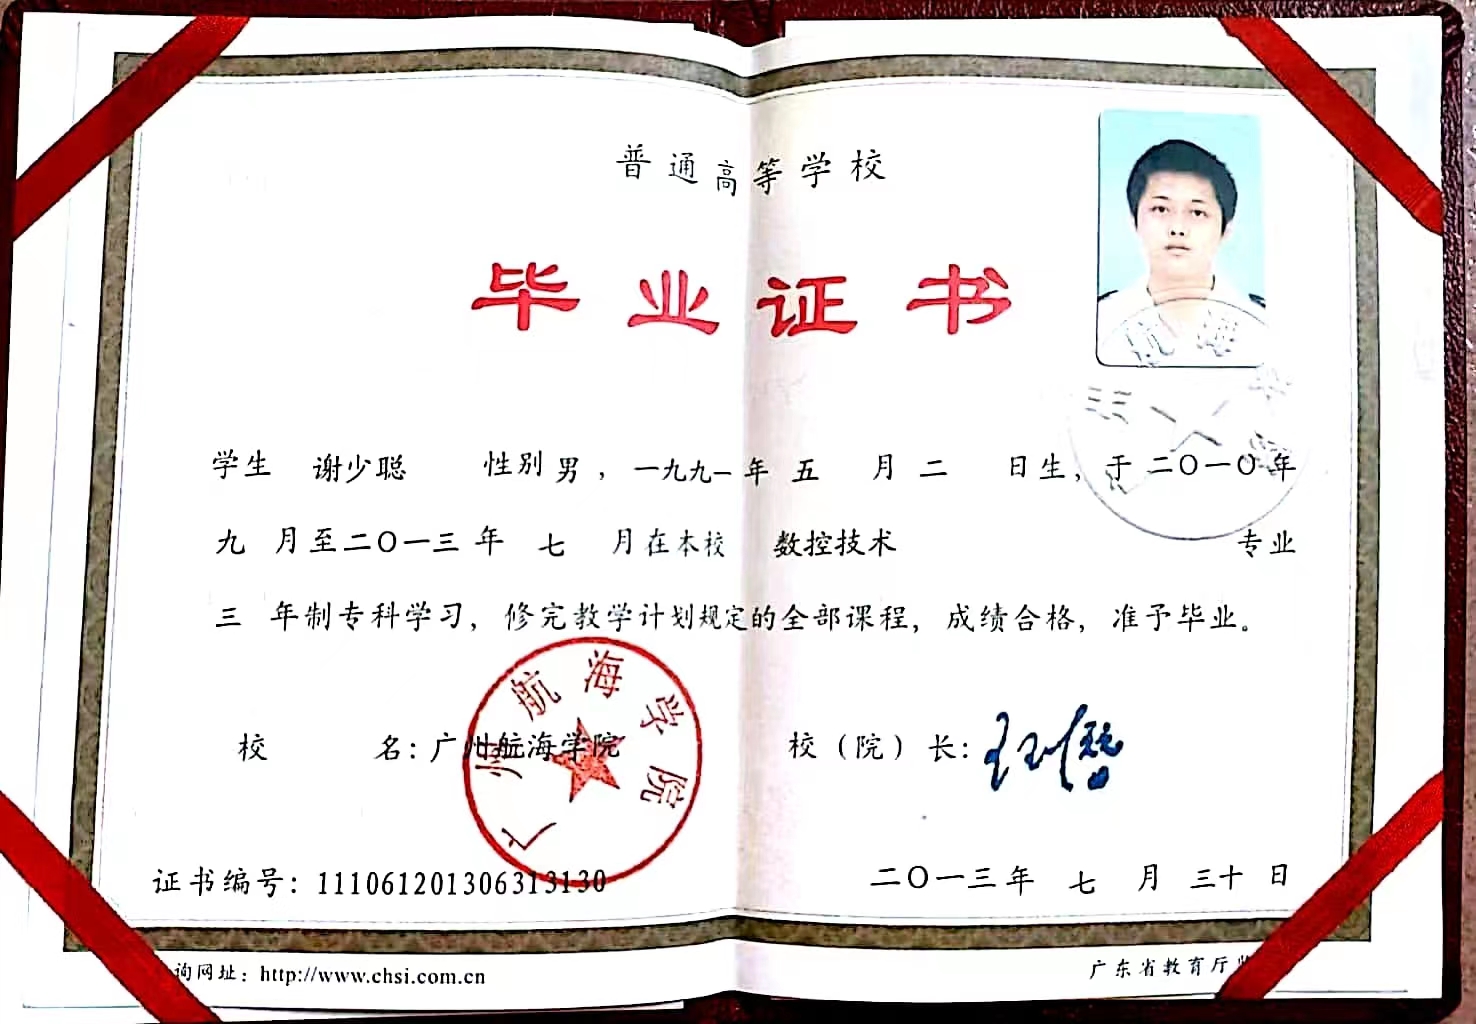 普通高等学校
毕业证书
学生 谢少聪 性别 男，一九九一年 五 月 二 日生，于 二〇一〇年
九 月至二〇一三年 七 月在本校 数控技术 专业
三 年制专科学习，修完教学计划规定的全部课程，成绩合格，准予毕业。
校 名：广州航海学院 校（院）长：
广州航海学院
证书编号：111061201306313130 二〇一三年 七 月 三十 日
询网址：http://www.chsi.com.cn 广东省教育厅